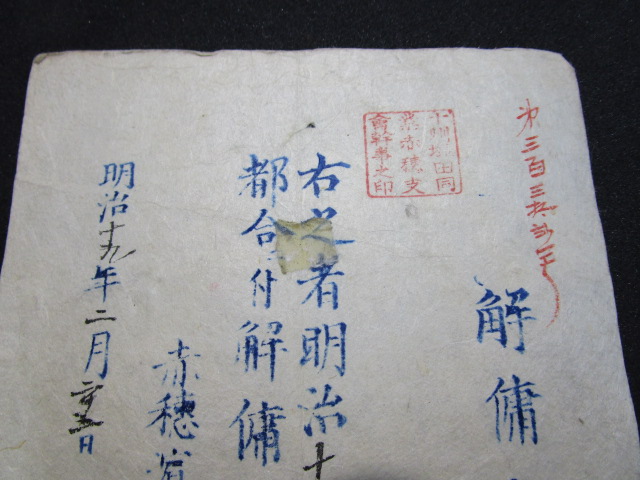 第三百三拾
解傭
十州塩田同
業赤穂支
會幹事之印
右之者明治十
都合ニ付解傭
赤穂
明治十九年二月廿五日